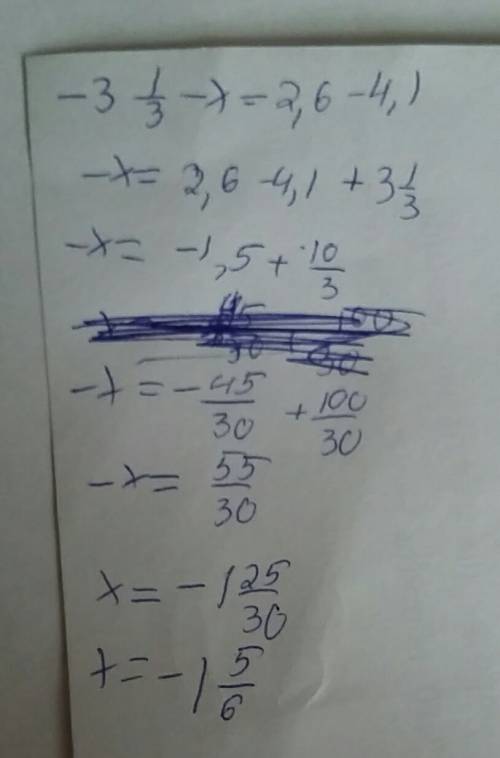 -3 1/3 -x = 2,6 -4,1
-x = 2,6 -4,1 + 3 1/3
-x = -1,5 + 10/3
-x = - 45/30 + 100/30
-x = 55/30
x = -1 25/30
x = -1 5/6